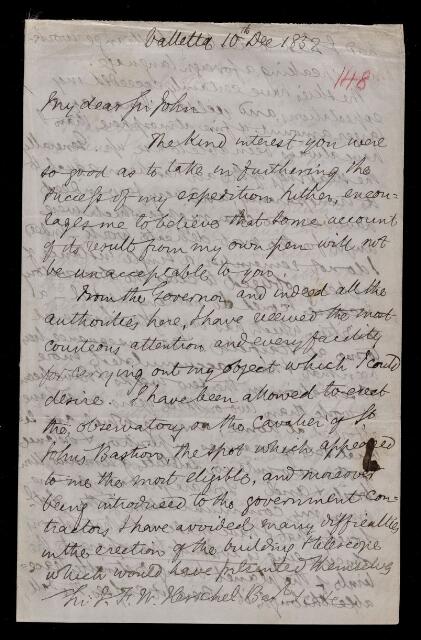 Valletta 10th Dec 1852
148
My dear Sir John
The kind interest you were
so good as to take in furthering the
success of my expedition hither, encou-
rages me to believe that some account
of its result from my own pen will not
be unacceptable to you.
From the Governor and indeed all the
authorities here, I have received the most
courteous attention and every facility
for carrying out my object which I could
desire. I have been allowed to erect
the observatory on the Cavalier of St
Johns Bastion, the spot which appeared
to me the most eligible, and moreover
being introduced to the government Con-
tractors I have avoided many difficulties
in the erection of the building & telescope
which would have presented themselves
Sir J. F. W. Herschel Bart